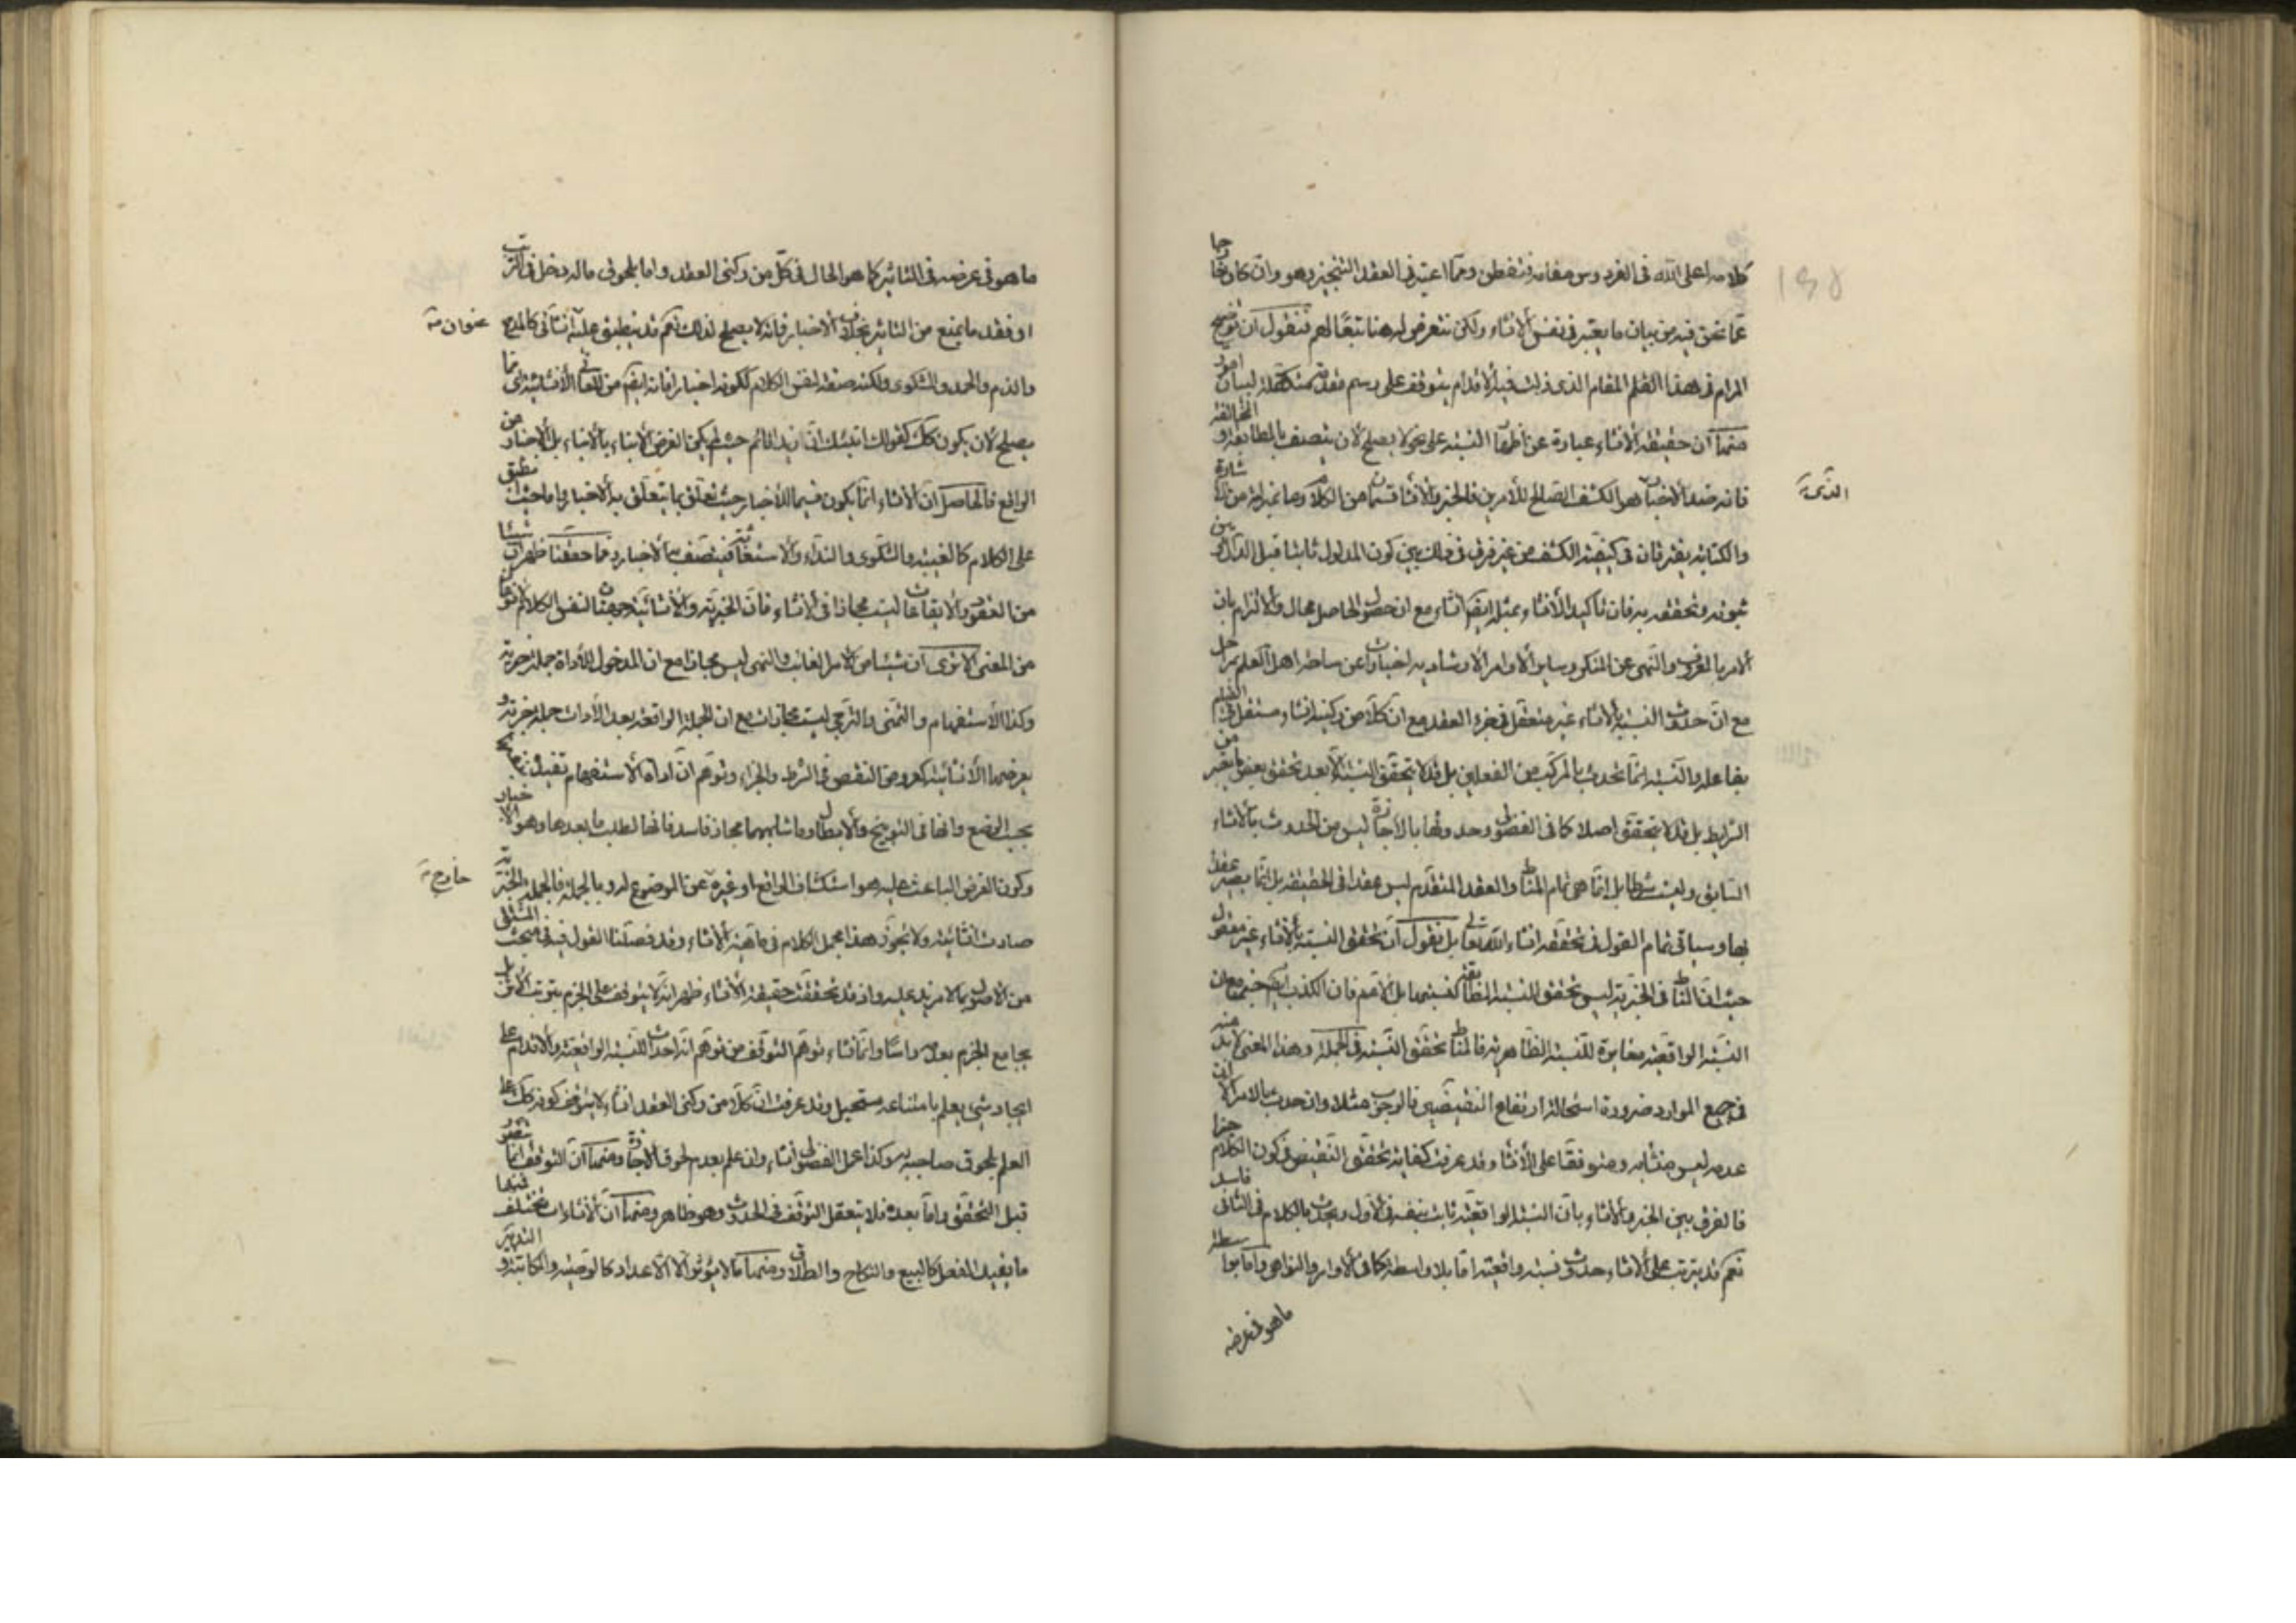 كلامه اعلى الله في الفردوس مقامه فتفطن ومما اعتبر في العقد التنجيز وهو وان كان خارجا
عما نحن فيه من بيان ما يعتبر في نفس الانشاء ولكن نتعرض له هنا تبعا لهم فنقول ان توضيح
المرام في هذا المقام الذي زلت فيه الاقدام يتوقف على رسم مقدمة متكفلة لبيان امور
منها ان حقيقة الانشاء عبارة عن النسبة على نحو لا يصلح لان يتصف بالمطابقة و المخالفة
فانه ضد الاخبار هو الكشف الصالح للامرين فالخبر والانشاء قسمان من الكلام وما بمنزلته من الاشارة
والكتابة يفترقان في كيفية الكشف من غير فرق في ذلك بين كون المدلول ثابتا قبل الدال وبين
ثبوته وتحققه به فان تأكيد الانشاء بمثله ايضا انشاء مع ان حصول الحاصل محال والالتزام بان
الامر بالمعروف والنهي عن المنكر وساير الاوامر الارشادية اخبارات عن ساحة اهل العلم بمراحل
مع ان حدوث النسبة بالانشاء غير متعقل في جزء العقد مع ان كلا من ركنيه انشاء مستقل
بفاعله والنسبة انما تحدث بالمركب من الفعلين بل قد لا يتحقق النسبة الا بعد تحقق بعض ما يعتبر من
الشرايط بل قد لا يتحقق اصلا كما في الفضولي وحدوثها بالاجازة ليس من الحدوث بالانشاء
السابق وليست شرطا بل انما هي تمام المناط والعقد المتقدم ليس عقدا في الحقيقة بل انما يصير عقدا
بها وسياتي تمام القول في تحققه انشاء الله تعالى بل نقول ان تحقق النسبة بالانشاء غير معقول
حيث ان المناط في الخبرية ليس تحقق النسبة المطابقة لنسبتها بل الاعم فان الكذب ايضا خبر مع ان
النسبة الواقعية مغايرة للنسبة الظاهرية فالمناط تحقق النسبة في الجملة وهذا المعنى لا بد منه
في جميع الموارد ضرورة استحالة ارتفاع النقيضين فالوجوب مثلا وان حدث بالامر الا ان
عدمه ليس منشأ به ومتوقفا على الانشاء وقد عرفت كفاية تحقق النقيض في كون الكلام خبرا
فالفرق بين الخبر والانشاء بان النسبة الواقعية ثابت بنفسه في الاول ويحدث بالكلام في الثاني فاسد
نعم قد يترتب على الانشاء حدوث نسبة واقعية اما بلا واسطة كما في الاوامر والنواهي واما بواسطة
ما هو في عرضه
ما هو في عرضه في التاثير كما هو الحال في كل من ركني العقد واما بلحوق ما له دخل في الترتب
او فقد ما يمنع من التاثير بخلاف الاخبار فانه لا يصلح لذلك نعم قد ينطبق عليه انشائي كالمدح
عنوان
والذم والحمد والشكوى ولكنه صفة لنفس الكلام لكونه اخبارا فانه ايضا من المعاني الانشائية
يصلح لان يكون كك كقولك انبئك ان زيدا قائم حيث لم يكن الغرض الانباء بالانباء بل الاخبار من
الواقع فالحاصل ان الانشاء انما يكون قسيما للاخبار حيث تعلق بما يتعلق به الاخبار واما حيث ينطبق
على الكلام كالغيبة والشكوى والنداء والاستغاثة فيتصف بها الاخبار ومما حققنا ظهر ان شيئا
من العقود والايقاعات ليست مجازا في الانشاء فان الخبرية والانشائية وجهتان لنفس الكلام
من المعنى الا ترى ان شيئا من الامر الغائب والنهي ليس مجازا مع ان المدخول للاداة جملة خبرية
وكذا الاستفهام والتمنى والترجي ليست مجازات مع ان الجملة الواقعة بعد الادات جملة خبرية و
يعرضها الانشائية كعروض النقص في الشرط والجزاء وتوهم ان اداة الاستفهام
بحسب الوضع وانها في التوبيخ والابطال وما شابههما مجاز فاسد فانها لطلب ما بعدها وهو الاخبار
وكون الغرض الباعث عليه هو استكشاف الواقع او غيره عن الموضوع له وبالجملة فالجملة الخبرية
خارج
صارت انشائية ولا تجوز هذا مجمل الكلام في ماهية الانشاء وقد فصلنا القول فيه في مبحث المشتق
من الاصول بما لا مزيد عليه واذ قد تحققت حقيقة الانشاء ظهر انه لا يتوقف على الجزم بترتب الاثر بل
يجامع الجزم بعدمه راسا وانما نشاء توهم التوقف من توهم انه احداث للنسبة الواقعية والاقدام على
ايجاد شئ يعلم بامتناعه مستحيل وقد عرفت ان كلا من ركني العقد انشاء ولا يتوقف كونه كك على
العلم بلحوق صاحبه به وكذا عمل الفضولي انشاء وان علم بعدم لحوق الاجازة ومنها ان التوقف انما يتصور
قبل التحقق واما بعده فلا يتعقل التوقف في الحدوث وهو ظاهر ومنها ان الانشاءات مختلفة فمنها
ما يفيد الفعل كالبيع والنكاح والطلاق ومنها ما لا يؤثر الا الاعداد كالوصية والمكاتبة و التدبير